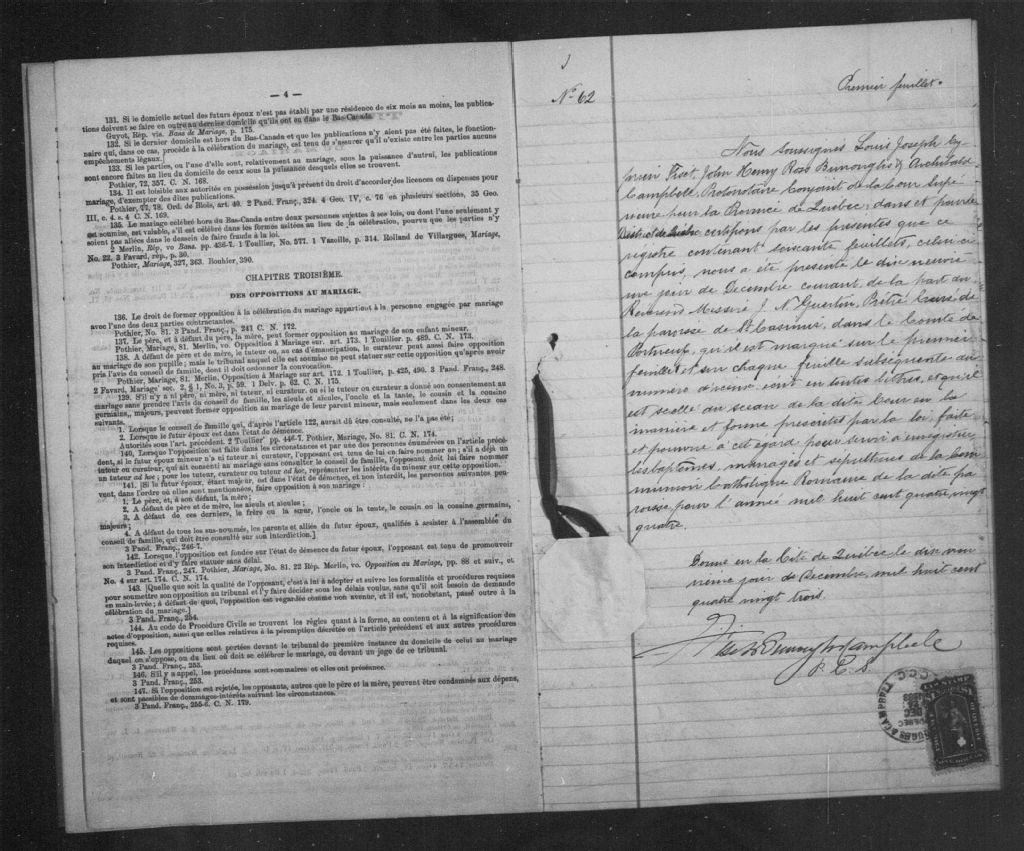 — 4 —
131. Si le domicile actuel des futurs époux n'est pas établi par une résidence de six mois au moins, les publica-
tions doivent se faire en outre au dernier domicile qu'ils ont eu dans le Bas-Canada.
Guyot, Rép. vis. Bans de Mariage, p. 175.
132. Si le dernier domicile est hors du Bas-Canada et que les publications n'y aient pas été faites, le fonction-
naire qui, dans ce cas, procède à la célébration du mariage, est tenu de s'assurer qu'il n'existe entre les parties aucuns
empêchements légaux.
133. Si les parties, ou l'une d'elle sont, relativement au mariage, sous la puissance d'autrui, les publications
sont encore faites au lieu du domicile de ceux sous la puissance desquels elles se trouvent.
Pothier, 72, 357. C. N. 168.
134. Il est loisible aux autorités en possession jusqu'à présent du droit d'accorder des licences ou dispenses pour
mariage, d'exempter des dites publications.
Pothier, 77, 78. Ord. de Blois, art. 40. 2 Pand. Franç., 324. 4 Geo. IV, c. 76 en plusieurs sections, 35 Geo.
III, c. 4, s. 4 C. N. 169.
135. Le mariage célébré hors du Bas-Canda entre deux personnes sujettes à ses lois, ou dont l'une seulement y
est soumise, est valable, s'il est célébré dans les formes usitées au lieu de la célébration, pourvu que les parties n'y
soient pas allées dans le dessein de faire fraude à la loi.
2 Merlin, Rép, vo Bans. pp. 436-7. 1 Toullier, No. 577. 1 Vazeille, p. 314. Rolland de Villargues, Mariage,
No. 22. 3 Favard, rép., p. 30.
Pothier, Mariage, 327, 363. Bouhier, 390.
CHAPITRE TROISIÈME.
DES OPPOSITIONS AU MARIAGE.
136. Le droit de former opposition à la célébration du mariage appartient à la personne engagée par mariage
avec l'une des deux parties contractantes.
Pothier, No. 81. 3 Pand. Franç., p. 241 C. N. 172.
137. Le père, et à défaut du père, la mère, peut former opposition au mariage de son enfant mineur.
Pothier, Mariage, 81. Merlin, vo. Opposition à Mariage sur. art. 173. 1 Toullier p. 489. C. N. 173.
138. A défaut de père et de mère, le tuteur ou, au cas d'émancipation, le curateur peut aussi faire opposition
au mariage de son pupille; mais le tribunal auquel elle est soumise ne peut statuer sur cette opposition qu'après avoir
pris l'avis du conseil de famille, dont il doit ordonner la convocation.
Pothier, Mariage, 81. Merlin, Opposition à Mariage sur art. 172. 1 Toullier, p. 425, 490. 3 Pand. Franç., 248.
2 Favard, Mariage sec. 2, § 1, No. 3, p. 59. 1 Delv. p. 62. C. N. 175.
139. S'il n'y a ni père, ni mère, ni tuteur, ni curateur, ou si le tuteur ou curateur a donné son consentement au
mariage sans prendre l'avis du conseil de famille, les aïeuls et aïeules, l'oncle et la tante, le cousin et la cousine
germains, majeurs, peuvent former opposition au mariage de leur parent mineur, mais seulement dans les deux cas
suivants.
1. Lorsque le conseil de famille qui, d'après l'article 122, aurait dû être consulté, ne l'a pas été;
2. Lorsque le futur époux est dans l'état de démence.
Autorités sous l'art. précédent. 2 Toullier pp. 446-7. Pothier, Mariage, No. 81. C. N. 174.
140. Lorsque l'opposition est faite dans les circonstances et par une des personnes énumérées en l'article précé-
dent, si le futur époux mineur n'a ni tuteur ni curateur, l'opposant est tenu de lui en faire nommer un; s'il a déjà un
tuteur ou curateur, qui ait consenti au mariage sans consulter le conseil de famille, l'opposant doit lui faire nommer
un tuteur ad hoc; pour les tuteur, curateur ou tuteur ad hoc, représenter les intérêts du mineur sur cette opposition.
141. [Si le futur époux, étant majeur, est dans l'état de démence, et non interdit, les personnes suivantes peu-
vent, dans l'ordre où elles sont mentionnées, faire opposition à son mariage:
1. Le père, et, à son défaut, la mère;
2. A défaut de père et de mère, les aïeuls et aïeules;
3. A défaut de ces derniers, le frère ou la sœur, l'oncle ou la tante, le cousin ou la cousine germains,
majeurs;
4. A défaut de tous les sus-nommés, les parents et alliés du futur époux, qualifiés à assister à l'assemblée du
conseil de famille, qui doit être consulté sur son interdiction.]
3 Pand. Franç., 246-7.
142. Lorsque l'opposition est fondée sur l'état de démence du futur époux, l'opposant est tenu de promouvoir
son interdiction et d'y faire statuer sans délai.
3 Pand. Franç., 247. Pothier, Mariage, No. 81. 22 Rép. Merlin, vo. Opposition au Mariage, pp. 88 et suiv., et
No. 4 sur art. 174. C. N. 174.
143. [Quelle que soit la qualité de l'opposant, c'est à lui à adopter et suivre les formalités et procédures requises
pour soumettre son opposition au tribunal et l'y faire décider sous les délais voulus, sans qu'il soit besoin de demande
en main-levée; à défaut de quoi, l'opposition est regardée comme non avenue, et il est, nonobstant, passé outre à la
célébration du mariage.]
3 Pand. Franç., 254.
144. Au code de Procédure Civile se trouvent les règles quant à la forme, au contenu et à la signification des
actes d'opposition, ainsi que celles relatives à la péremption décrétée en l'article précédent et aux autres procédures
requises.
145. Les oppositions sont portées devant le tribunal de première instance du domicile de celui au mariage
duquel on s'oppose, ou du lieu où doit se célébrer le mariage, ou devant un juge de ce tribunal.
3 Pand. Franç., 253.
146. S'il y a appel, les procédures sont sommaires et elles ont préséance.
3 Pand. Franç., 253.
147. Si l'opposition est rejetée, les opposants, autres que le père et la mère, peuvent être condamnés aux dépens,
et sont passibles de dommages-intérêts suivant les circonstances.
3 Pand. Franç., 255-6. C. N. 179.
No 62
Premier feuillet.
Nous soussignés Louis Joseph Cy-
prien Fiset, John Henry Ross Burroughs & Archibald
Campbell, Protonotaire Conjoint de la Cour Supé-
rieure pour la Province de Québec, dans et pour le
District de Québec certifions par les présentes que ce
registre contenant soixante feuillets, celui-ci
compris, nous a été présenté le dix neuviè-
me jour de Décembre courant, de la part du
Révérend Messire J. N. Guertin, Prêtre Curé de
la paroisse de St Casimir, dans le Comté de
Portneuf, qu'il est marqué sur le premier
feuillet et sur chaque feuille subséquente du
numéro d'icelui, écrit en toutes lettres, et qu'il
est scellé du sceau de la dite Cour en la
manière et forme prescrites par la loi, faite
et pourvue à cet égard pour servir à enregistrer
les baptêmes, mariages et sépultures de la Com-
munion Catholique Romaine de la dite pa-
roisse pour l'année mil huit cent quatre vingt
quatre.
Donné en la Cité de Québec, le dix neu-
vième jour de Décembre, mil huit cent
quatre vingt trois.
Fiset Burroughs Campbell
P. C. S.